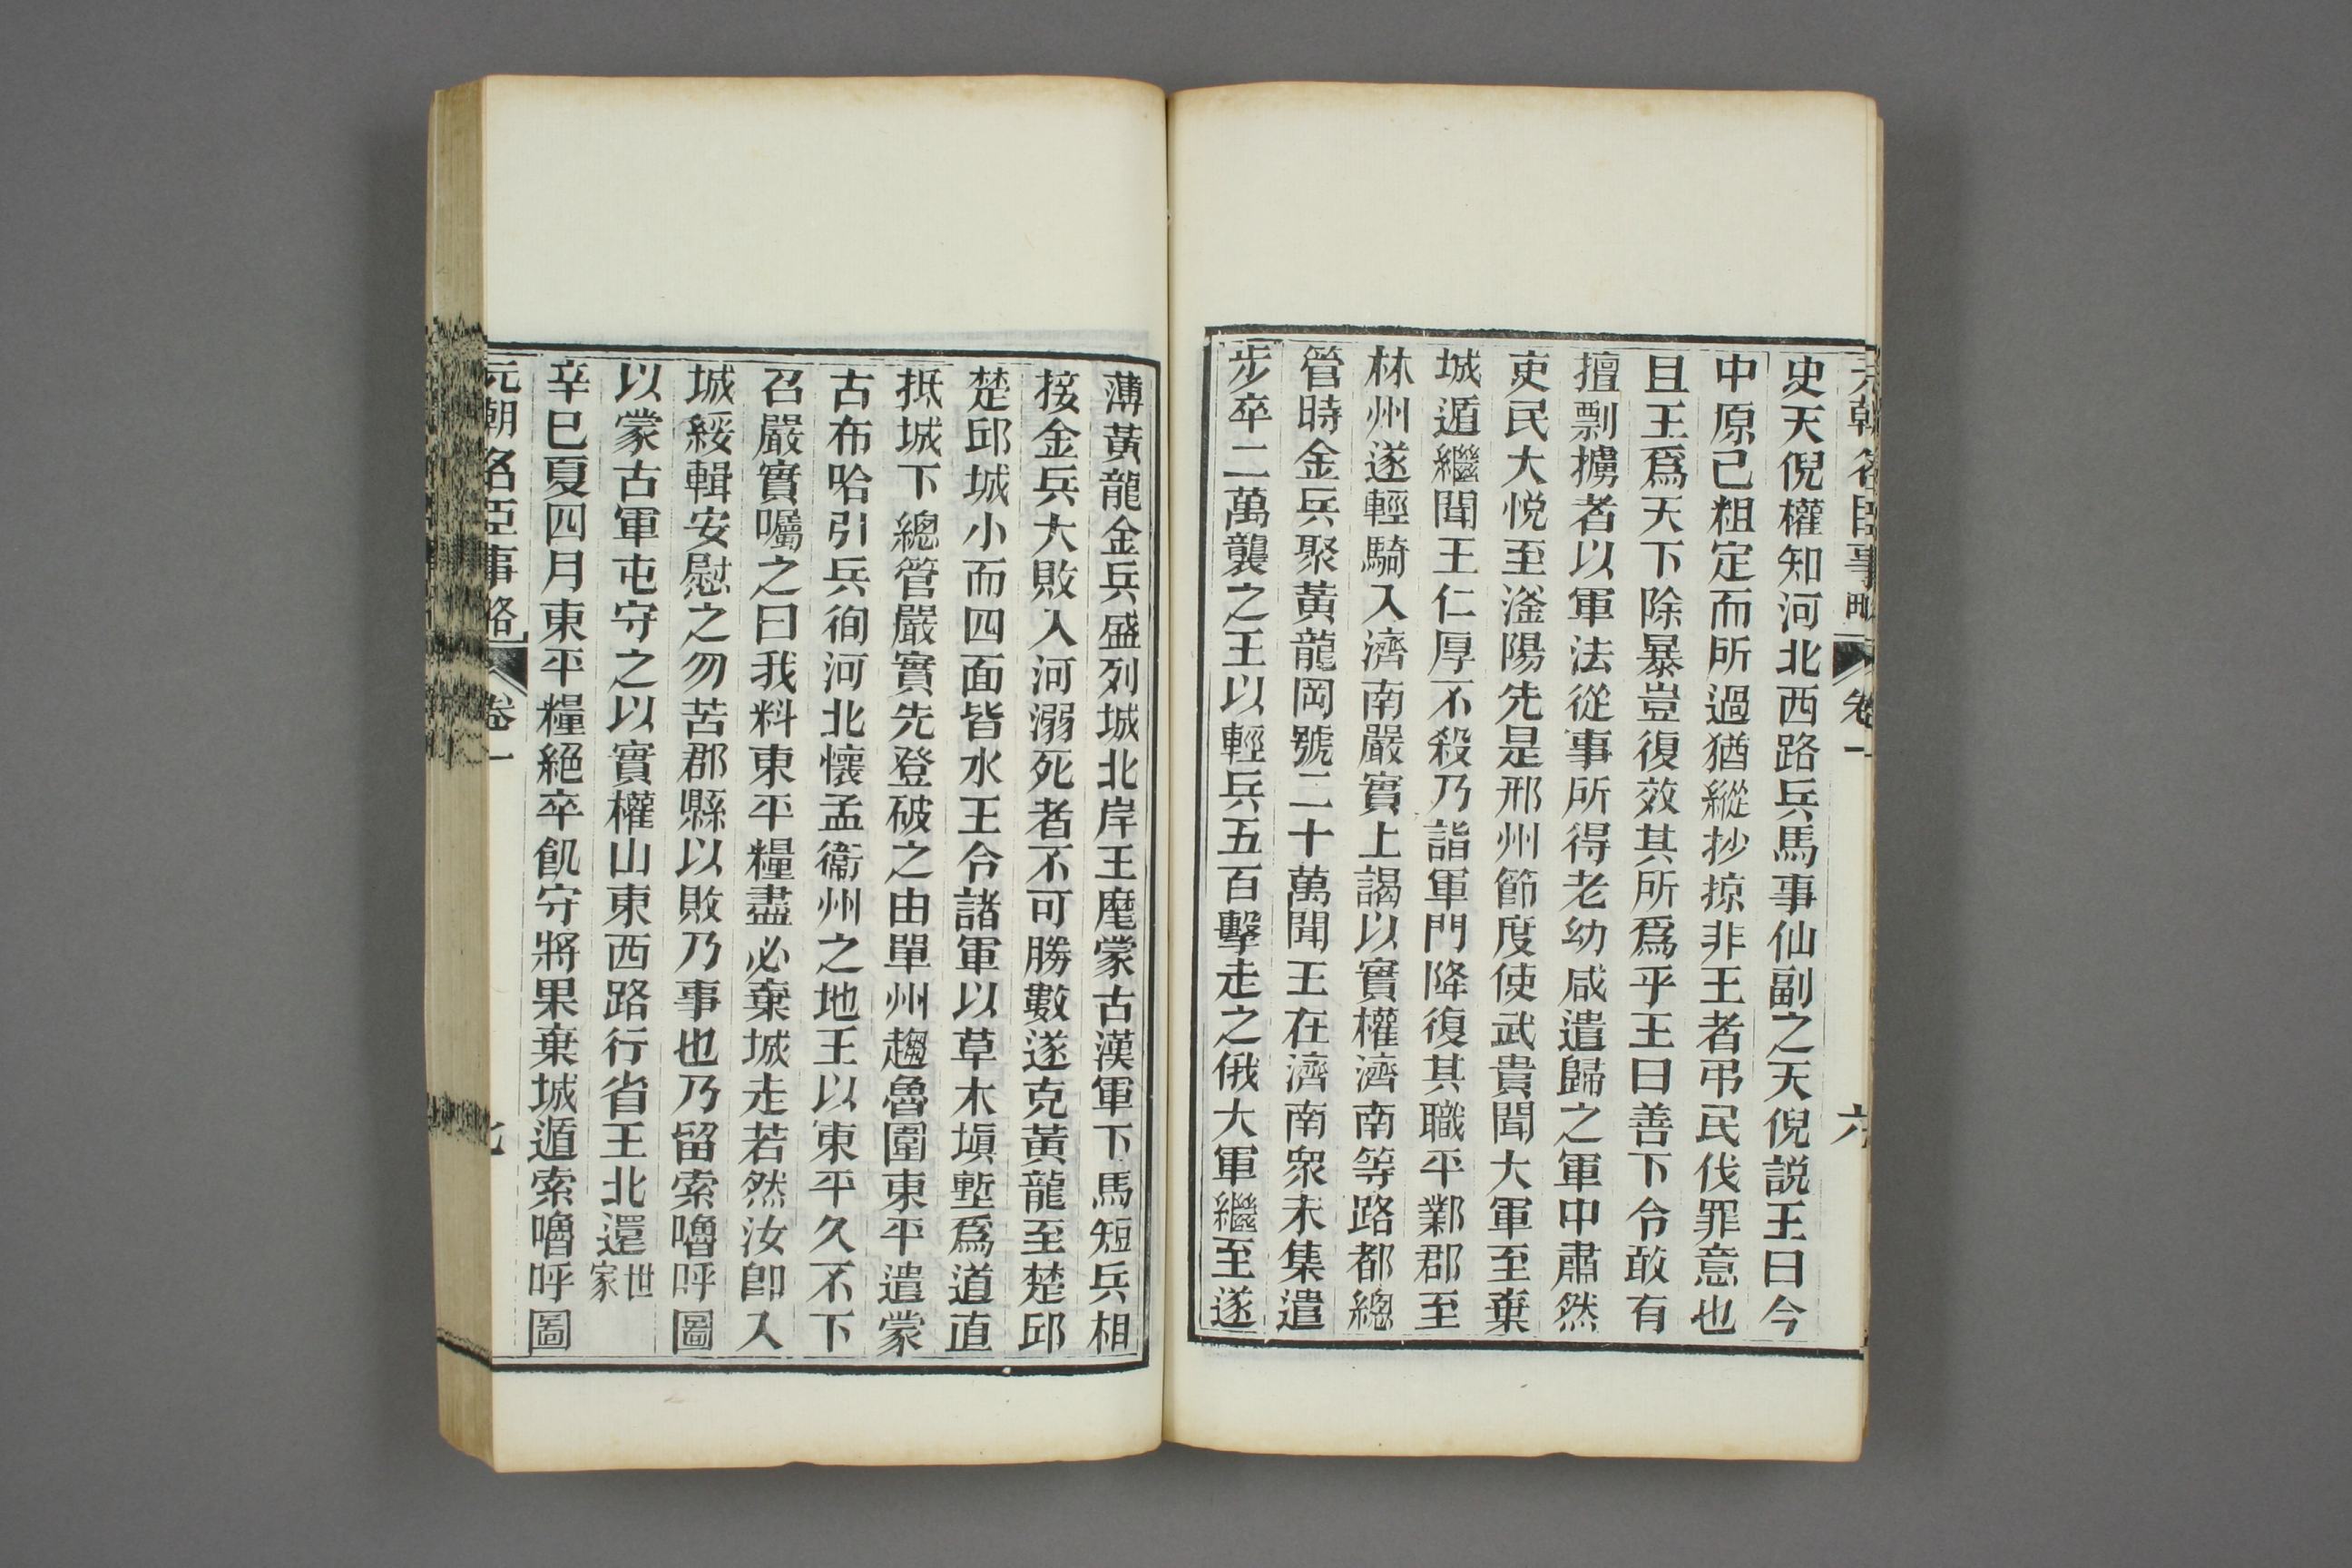 元朝名臣事略 卷一 六
史天倪權知河北西路兵馬事仙副之天倪說王曰今
中原已粗定而所過猶縱抄掠非王者弔民伐罪意也
且王爲天下除暴豈復效其所爲乎王曰善下令敢有
擅剽擄者以軍法從事所得老幼咸遣歸之軍中肅然
吏民大悅至滏陽先是邢州節度使武貴聞大軍至棄
城遁繼聞王仁厚不殺乃詣軍門降復其職平鄴郡至
林州遂輕騎入濟南嚴實上謁以實權濟南等路都總
管時金兵聚黃龍岡號二十萬聞王在濟南衆未集遣
步卒二萬襲之王以輕兵五百擊走之俄大軍繼至遂
薄黃龍金兵盛列城北岸王麾蒙古漢軍下馬短兵相
接金兵大敗入河溺死者不可勝數遂克黃龍至楚邱
楚邱城小而四面皆水王令諸軍以草木塡塹爲道直
抵城下總管嚴實先登破之由單州趨魯圍東平遣蒙
古布哈引兵徇河北懷孟衞州之地王以東平久不下
召嚴實囑之曰我料東平糧盡必棄城走若然汝卽入
城綏輯安慰之勿苦郡縣以敗乃事也乃留索嚕呼圖
以蒙古軍屯守之以實權山東西路行省王北還世家
辛巳夏四月東平糧絕卒飢守將果棄城遁索嚕呼圖
元朝名臣事略 卷一 七